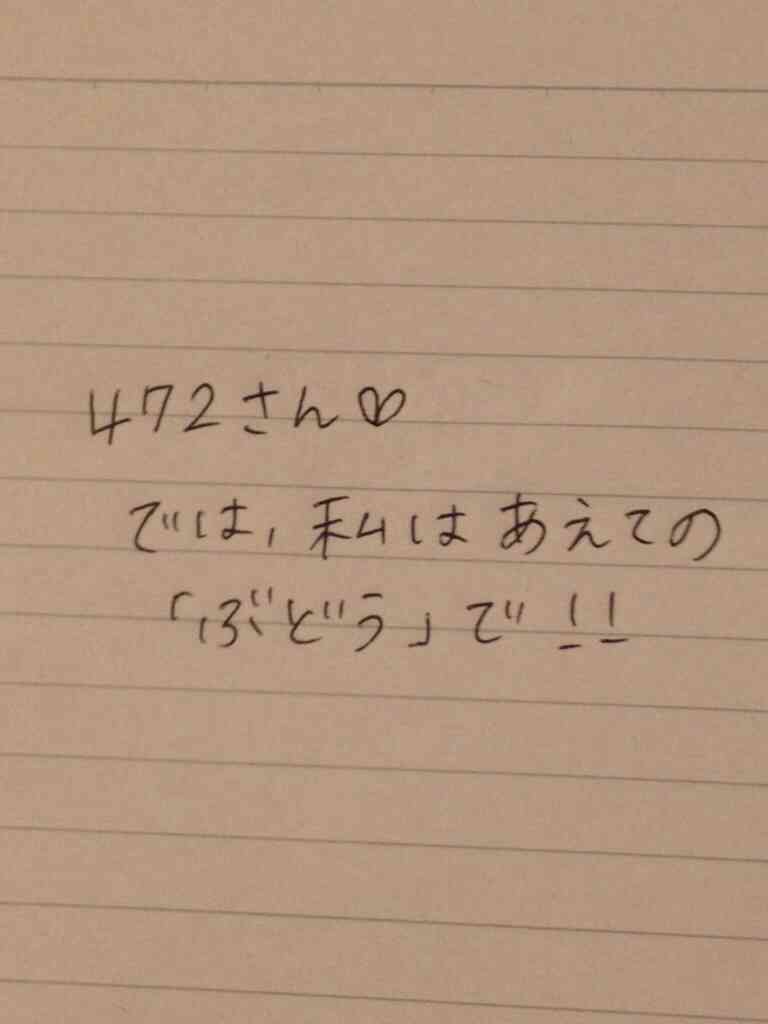 472さん♡
では、私はあえての
「ぶどう」で!!